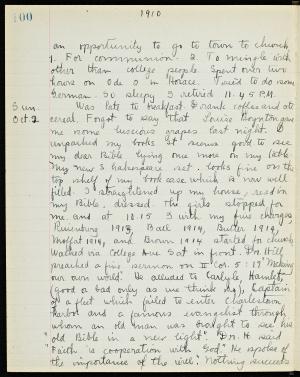 100
1910
an opportunity to go to town to church
1. For communion. 2. To mingle with
other than college people. Spent over two
hours on Ode I in Horace. Tried to do some
German. So sleepy I retired 11.45 P.M.
Sun. Oct. 2
Was late to breakfast. Drank coffee and ate
cereal. Forgot to say that Louise Boynton gave
me some luscious grapes last night. I
unpacked my books. It seems good to see
my dear Bible lying once more on my table.
My new Shakespeare set looks fine on the
top shelf of my bookcase which is now well
filled. I straightened up my house, read in
my Bible, dressed. The girls stopped for
me and at 10.15 I with my five charges
1913, Ball 1914, Butler 1914,
Moffat 1914, and Brown 1914 started for church.
Walked via College Ave. Sat in front. Dr. Hill
preached a fine sermon on II Cor. 5:17
our own world. He alluded to Carlyle, Hamlet
(good & bad only as we think so), Captain
of a fleet which failed to enter Charlestown
harbor and a famous evangelist through
whom an old man was brought to see "his
old Bible in a new light". Dr. H. said
"Faith is cooperation with God." He spoke of
the importance of the will. "Nothing succeeds